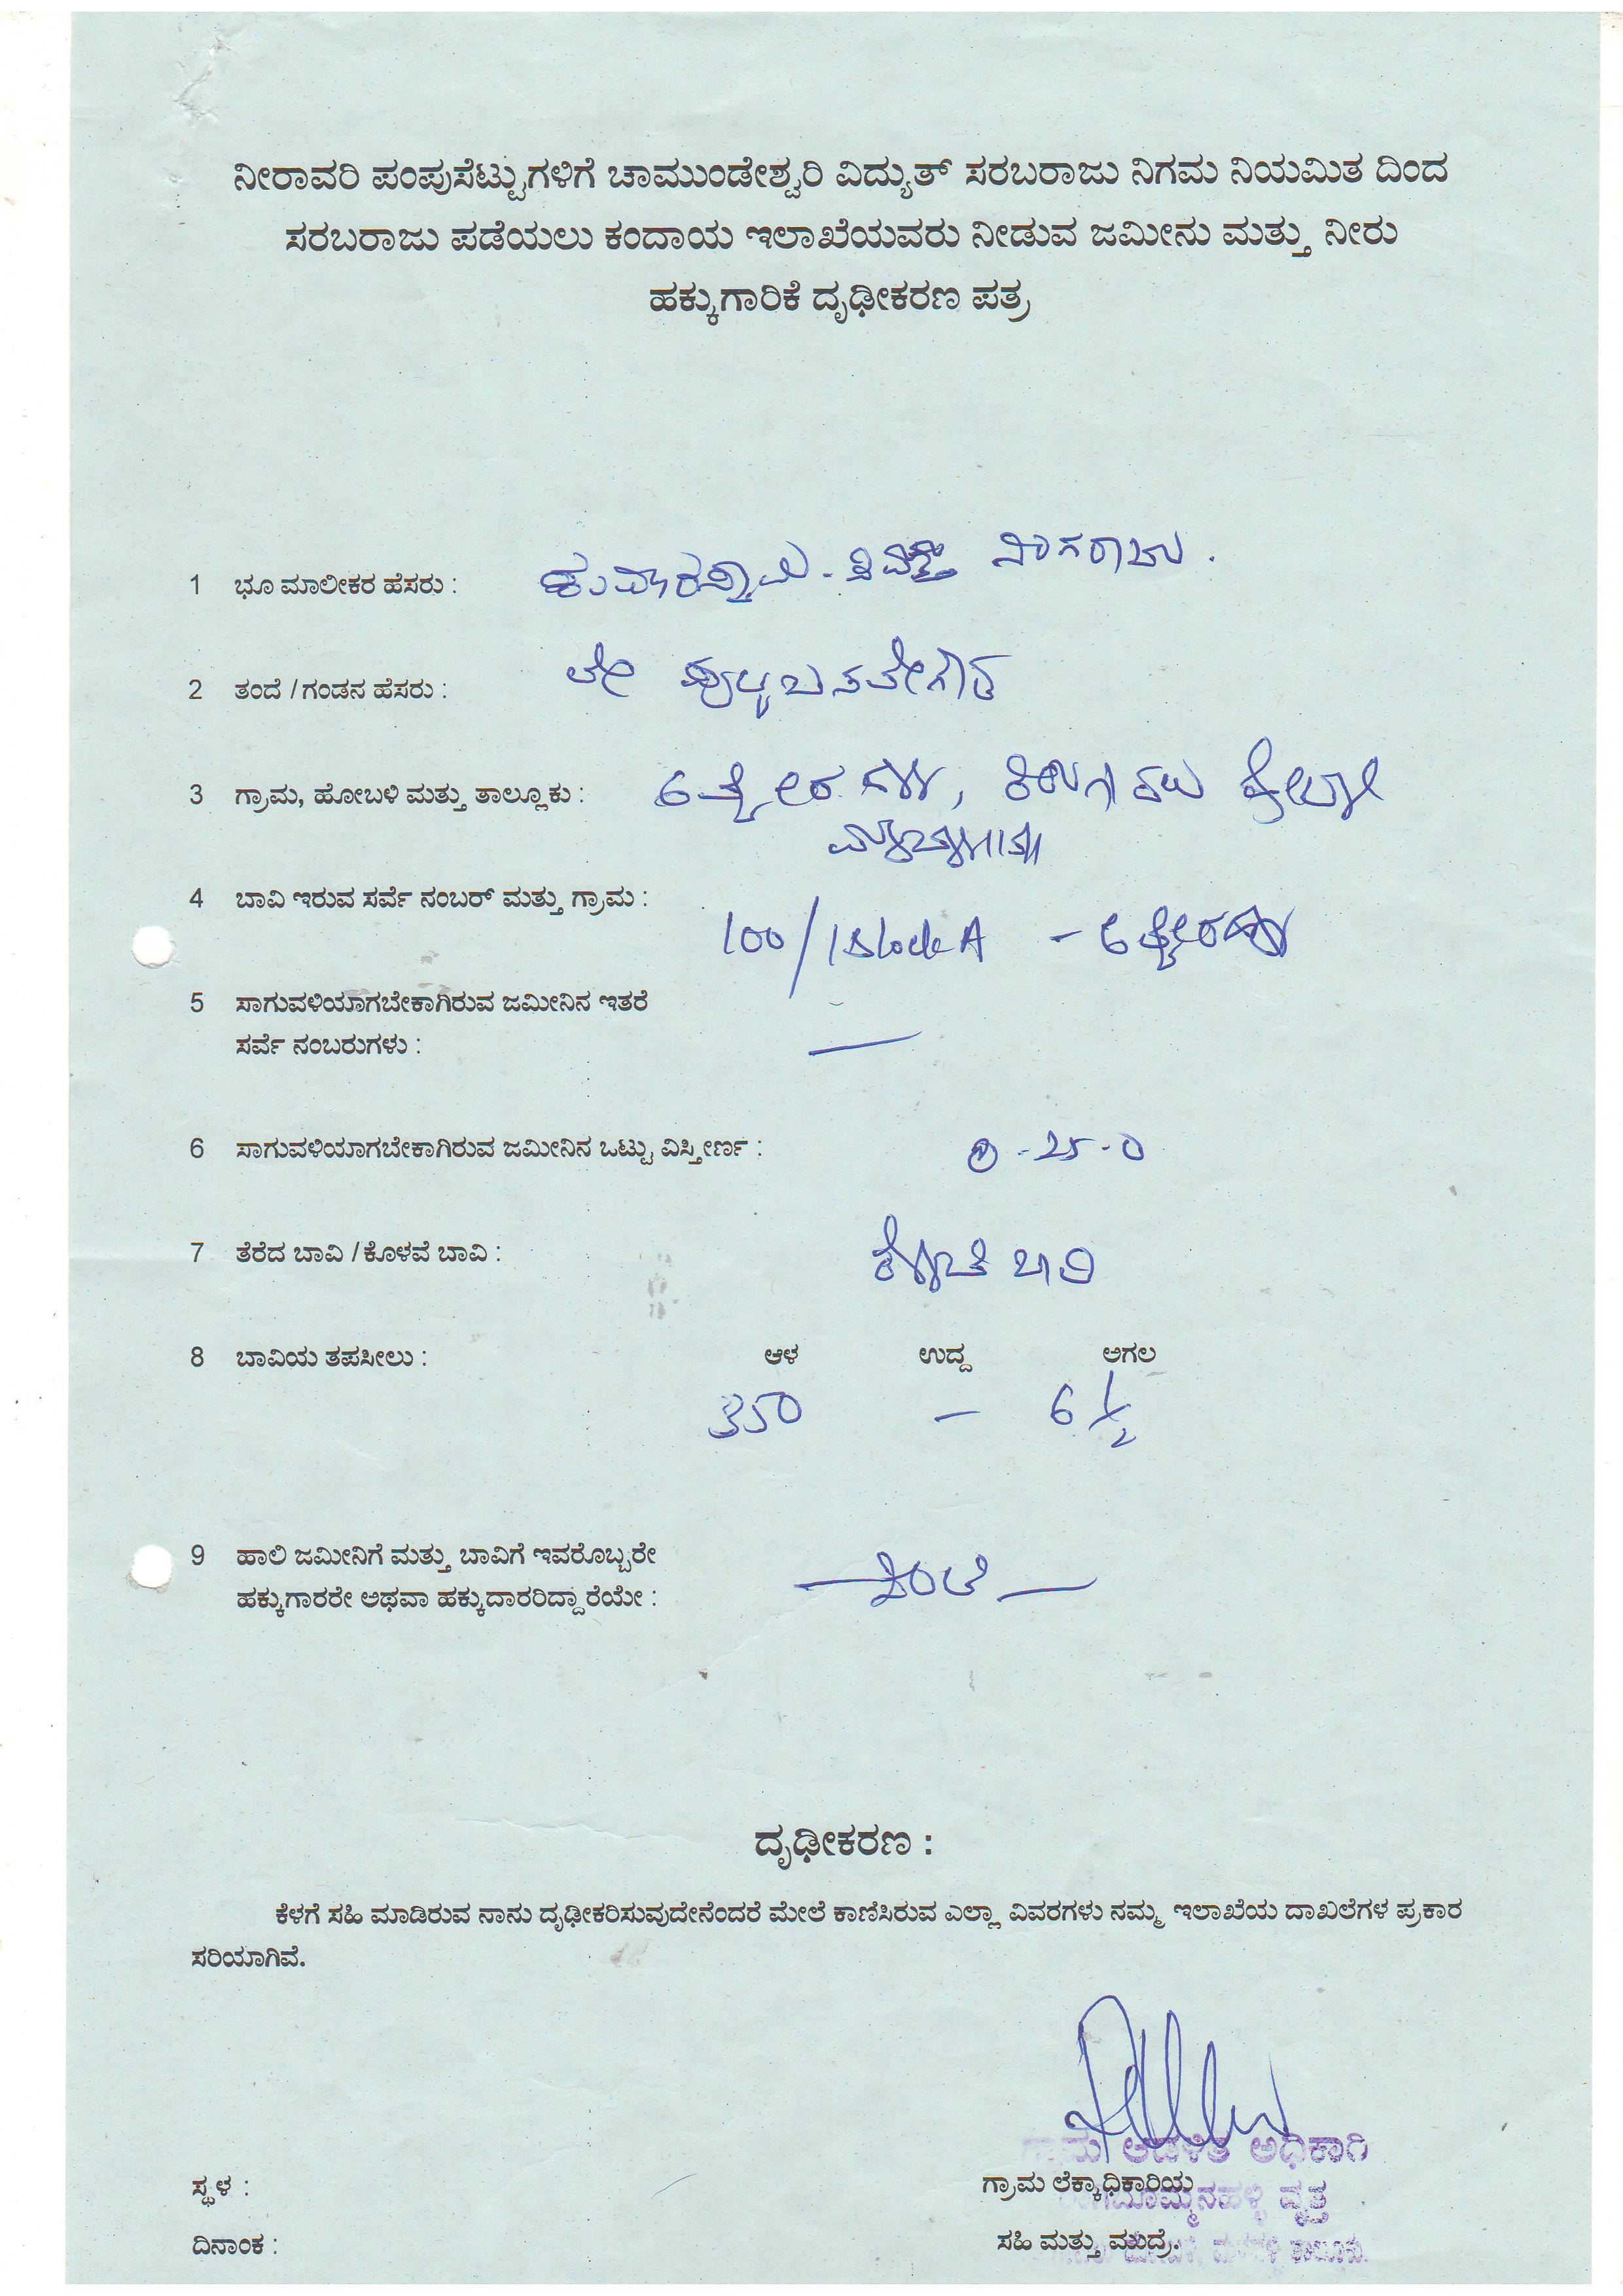 ನೀರಾವರಿ ಪಂಪುಸೆಟ್ಟುಗಳಿಗೆ ಚಾಮುಂಡೇಶ್ವರಿ ವಿದ್ಯುತ್ ಸರಬರಾಜು ನಿಗಮ ನಿಯಮಿತ ದಿಂದ
ಸರಬರಾಜು ಪಡೆಯಲು ಕಂದಾಯ ಇಲಾಖೆಯವರು ನೀಡುವ ಜಮೀನು ಮತ್ತು ನೀರು
ಹಕ್ಕುಗಾರಿಕೆ ದೃಢೀಕರಣ ಪತ್ರ
1 ಭೂ ಮಾಲೀಕರ ಹೆಸರು : ಕುಮಾರಸ್ವಾಮಿ. ನಾಗರಾಜು.
2 ತಂದೆ / ಗಂಡನ ಹೆಸರು : ಲೇ
3 ಗ್ರಾಮ, ಹೋಬಳಿ ಮತ್ತು ತಾಲ್ಲೂಕು :
4 ಬಾವಿ ಇರುವ ಸರ್ವೆ ನಂಬರ್ ಮತ್ತು ಗ್ರಾಮ : 100/1BlockA -
5 ಸಾಗುವಳಿಯಾಗಬೇಕಾಗಿರುವ ಜಮೀನಿನ ಇತರೆ
ಸರ್ವೆ ನಂಬರುಗಳು : —
6 ಸಾಗುವಳಿಯಾಗಬೇಕಾಗಿರುವ ಜಮೀನಿನ ಒಟ್ಟು ವಿಸ್ತೀರ್ಣ : 0-25-0
7 ತೆರೆದ ಬಾವಿ / ಕೊಳವೆ ಬಾವಿ : ಕೊಳವೆ ಬಾವಿ
8 ಬಾವಿಯ ತಪಸೀಲು : ಆಳ ಉದ್ದ ಅಗಲ
350 — 6 1/2
9 ಹಾಲಿ ಜಮೀನಿಗೆ ಮತ್ತು ಬಾವಿಗೆ ಇವರೊಬ್ಬರೇ
ಹಕ್ಕುಗಾರರೇ ಅಥವಾ ಹಕ್ಕುದಾರರಿದ್ದಾರೆಯೇ :
ದೃಢೀಕರಣ :
ಕೆಳಗೆ ಸಹಿ ಮಾಡಿರುವ ನಾನು ದೃಢೀಕರಿಸುವುದೇನೆಂದರೆ ಮೇಲೆ ಕಾಣಿಸಿರುವ ಎಲ್ಲಾ ವಿವರಗಳು ನಮ್ಮ ಇಲಾಖೆಯ ದಾಖಲೆಗಳ ಪ್ರಕಾರ
ಸರಿಯಾಗಿವೆ.
ಗ್ರಾಮ ಆಡಳಿತ ಅಧಿಕಾರಿ
ಸ್ಥಳ : ಗ್ರಾಮ ಲೆಕ್ಕಾಧಿಕಾರಿಯ
ವೃತ್ತ
ದಿನಾಂಕ : ಸಹಿ ಮತ್ತು ಮುದ್ರೆ.